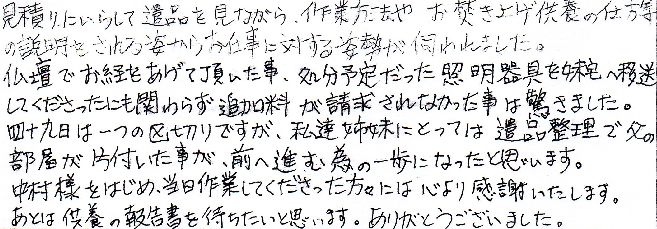 見積りにいらして遺品を見ながら、作業方法や お焚き上げ供養の仕方等
の説明をされる姿からお仕事に対する姿勢が伺われました。
仏壇でお経をあげて頂いた事、処分予定だった照明器具を妹宅へ移送
してくださったにも関わらず追加料が請求されなかった事は驚きました。
四十九日は一つの区切りですが、私達姉妹にとっては遺品整理で父の
部屋が片付いた事が、前へ進む為の一歩になったと思います。
中村様をはじめ、当日作業してくださった方々には心より感謝いたします。
あとは供養の報告書を待ちたいと思います。ありがとうございました。